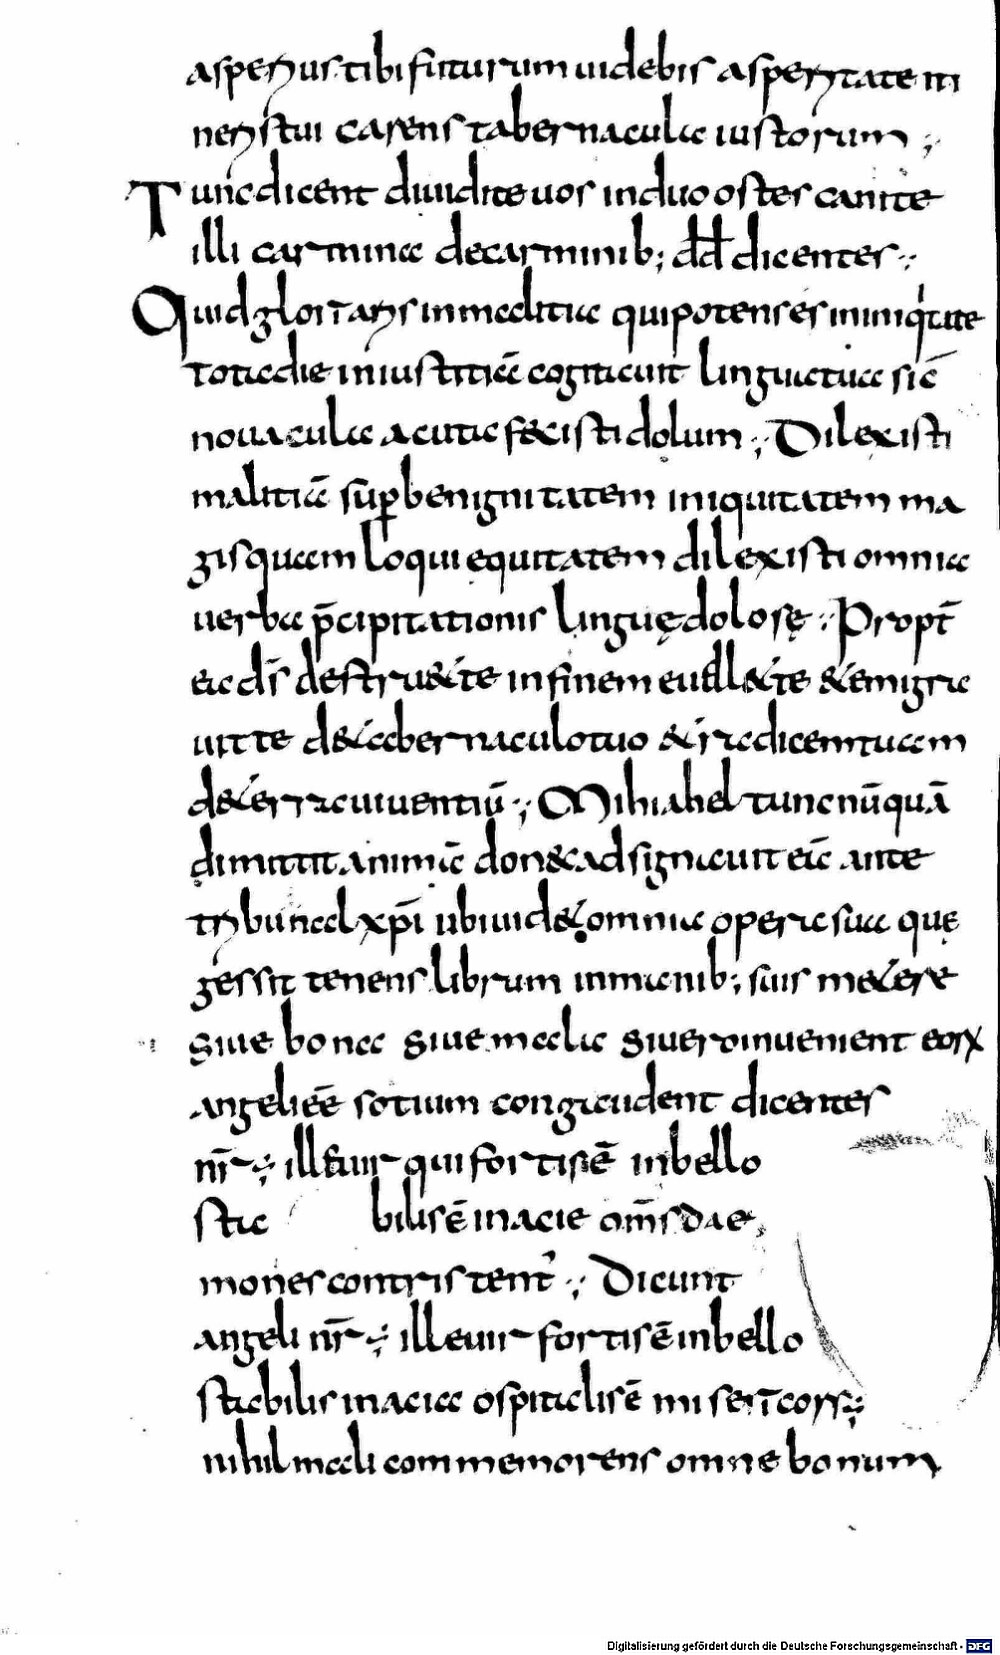 asperius tibi futurum uidebis asperitatem in
neristui carens tabernacula iustorum ;
Tunc dicent diuidite uos induo ostes canite
illi carmina decarminib; dd dicentes :
Quid gloriaris inmalitia qui potens es ininiq̇tate
tota die iniustitiā cogitauit lingua tua sic̄
nouacula acuta fecisti dolum ; Dilexisti
malitiā sup benignitatem iniquitatem ma
gis quam loqui equitatem dilexisti omnia
uerba p̄cipitationis linguę dolosę : Propt̄
ea dš destru&te infinem euell&te & emigra
uit te d&abernaculo tuo & radicem tuam
d&erra uiuentiū ; Mihi ahel tunc nūquā
dimittit animā donec adsignauit eā ante
tribunal xp̄i ubi uid& omnia opera sua quę
gessit tenens librum inmanib; suis m&ere
siue bona siue mala siuero inuenient eorx
angeli eē sotium congaudent dicentes
nr̄ : ille uir qui fortis ē inbello
sta bilis ē inacie om̄s dae
mones contristent' ; Dicunt
angeli nr̄ ; ille uir fortis ē inbello
stabilis inacia ospitalis ē misericors ;
nihil mali commemorens omne bonum
Digitalisierung gefördert durch die Deutsche Forschungsgemeinschaft - DFG